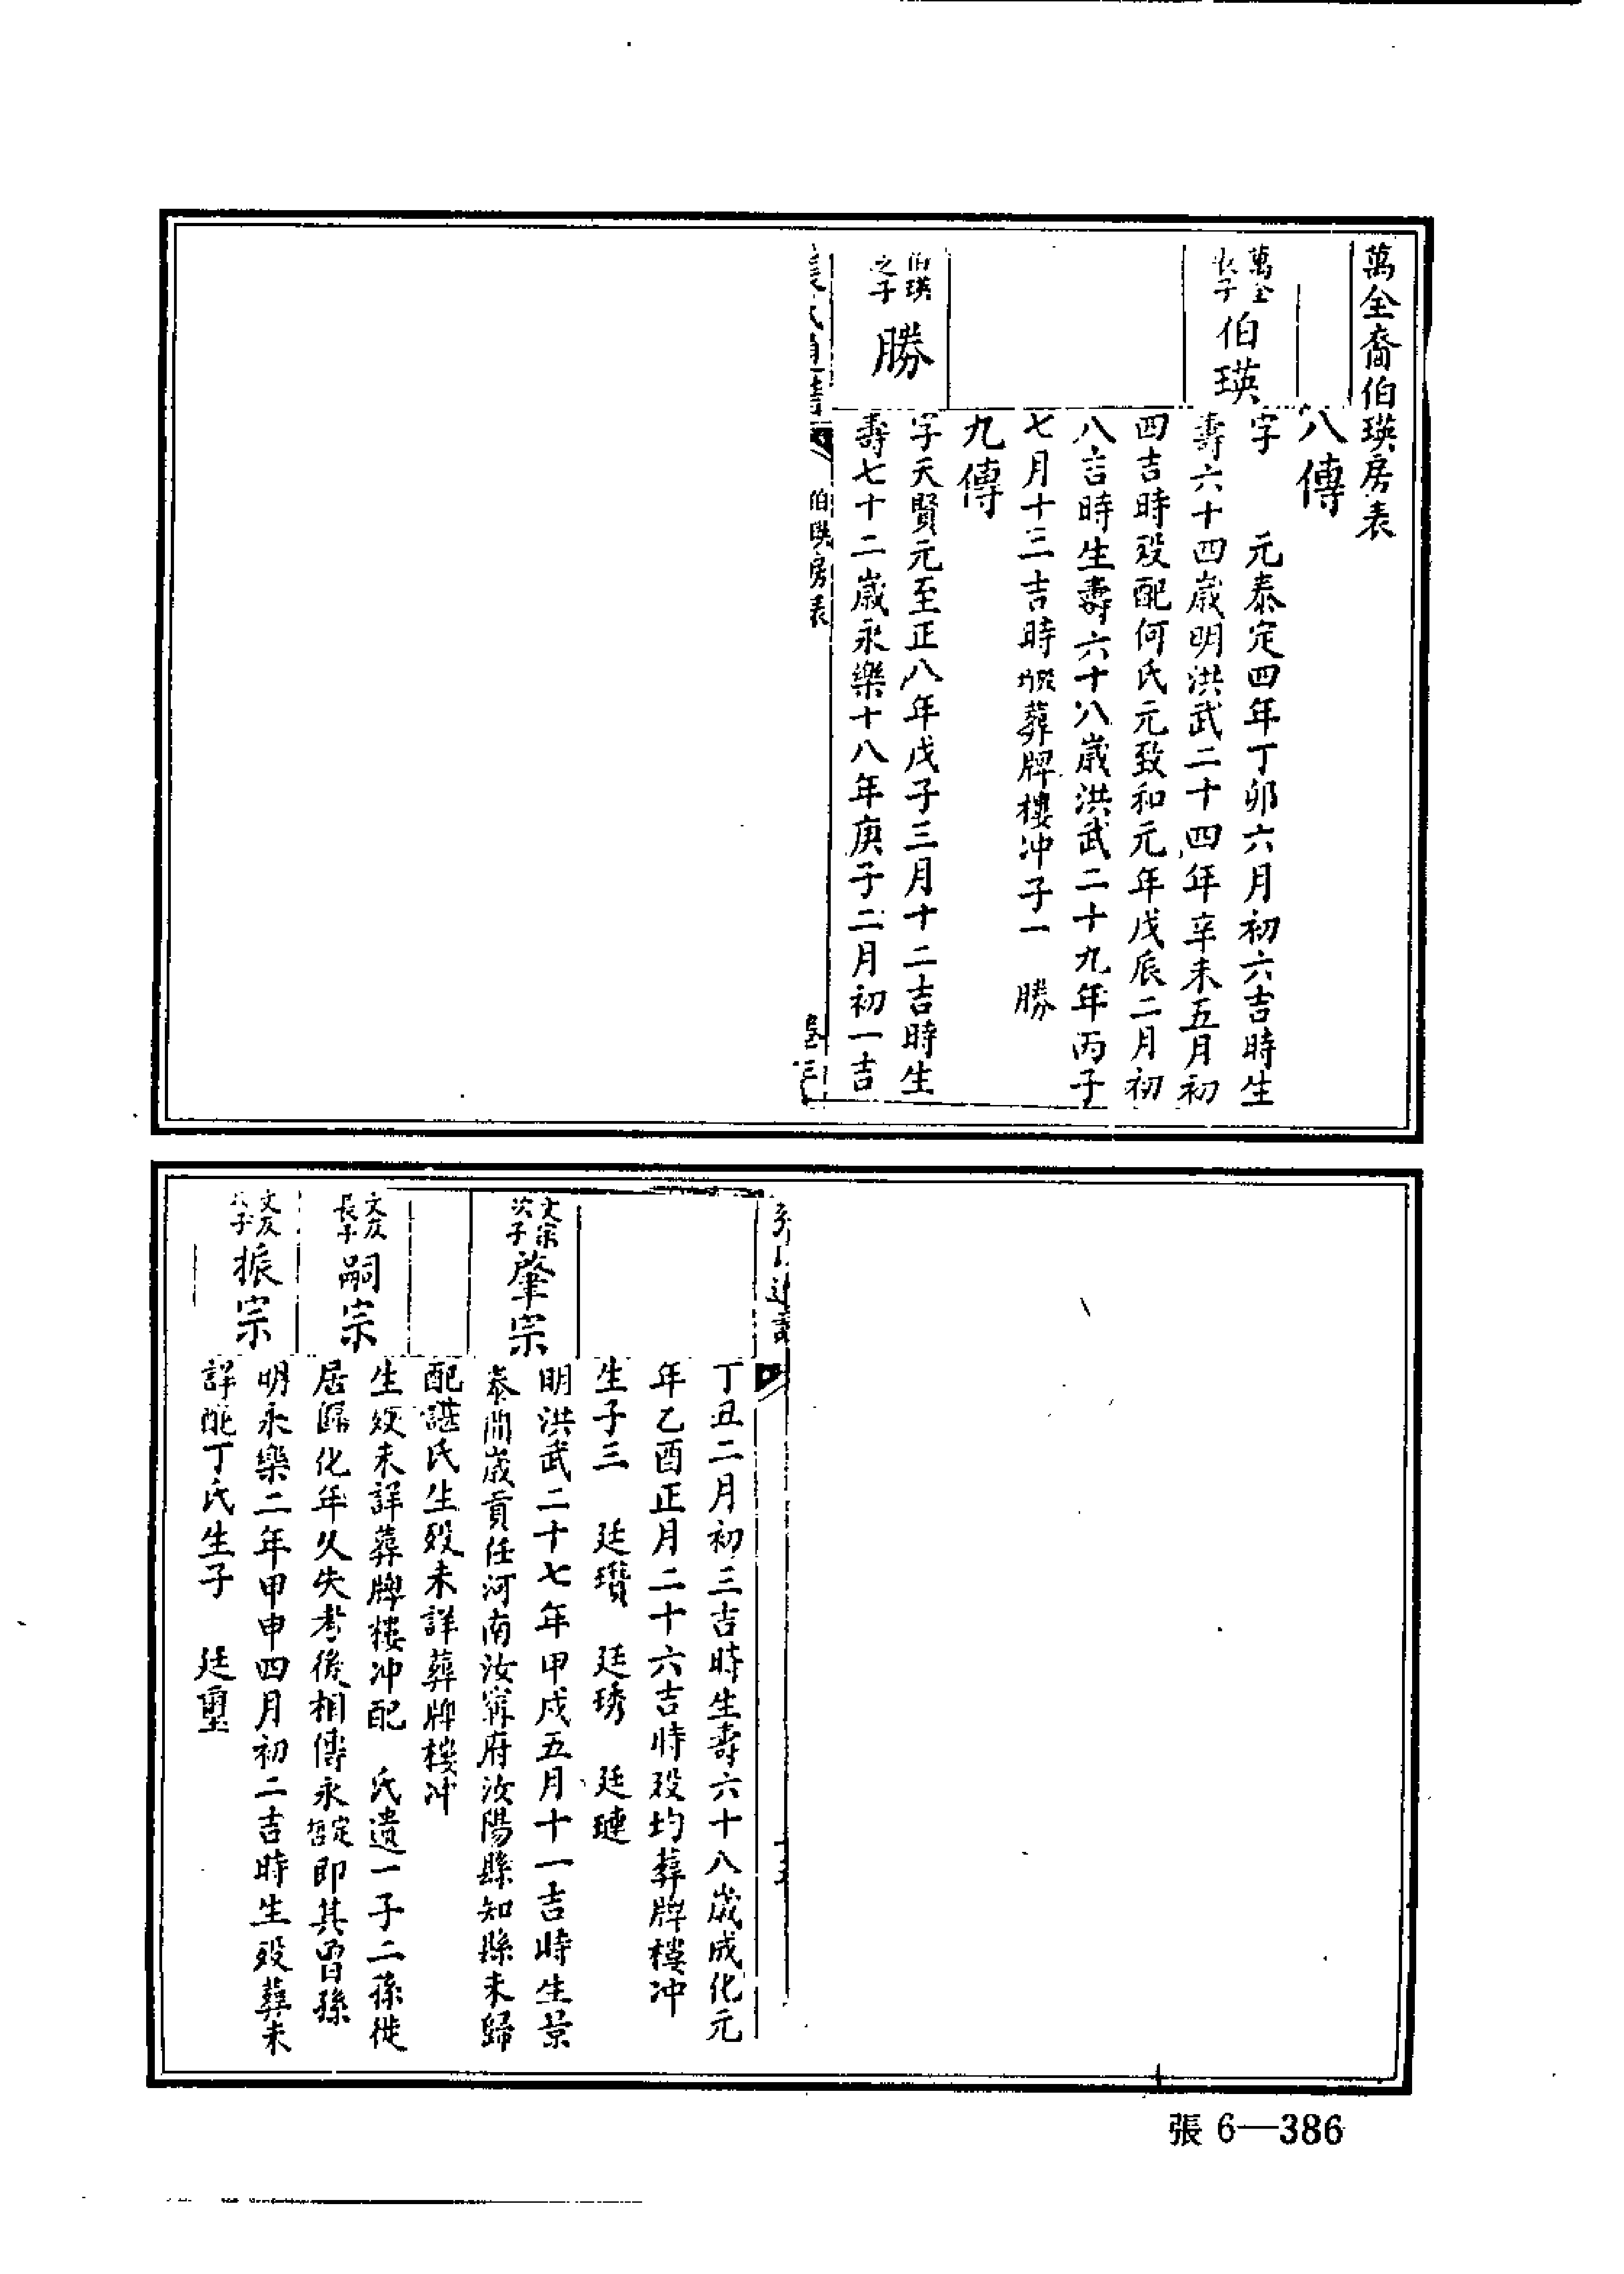 萬全裔伯瑛房表
八傳
萬全長子 伯瑛
字 元泰定四年丁卯六月初六吉時生
壽六十四歲明洪武二十四年辛未五月初
四吉時殁配何氏元致和元年戊辰二月初
八吉時生壽六十八歲洪武二十九年丙子
七月十三吉時殁葬牌樓冲子一 勝
九傳
伯瑛之子 勝
字天賢元至正八年戊子三月十二吉時生
壽七十二歲永樂十八年庚子二月初一吉
伯瑛房表
丁丑二月初三吉時生壽六十八歲成化元
年乙酉正月二十六吉時殁均葬牌樓冲
生子三 廷瓚 廷琇 廷璉
文宗次子 肇宗
明洪武二十七年甲戌五月十一吉時生景
泰間歲貢任河南汝甯府汝陽縣知縣未歸
配諶氏生殁未詳葬牌樓冲
文友長子 嗣宗
生殁未詳葬牌樓冲配 氏遺一子二孫徙
居歸化年久失考後相傳永定即其曾孫
文友次子 振宗
明永樂二年甲申四月初二吉時生殁葬未
詳配丁氏生子 廷璽
張 6—386